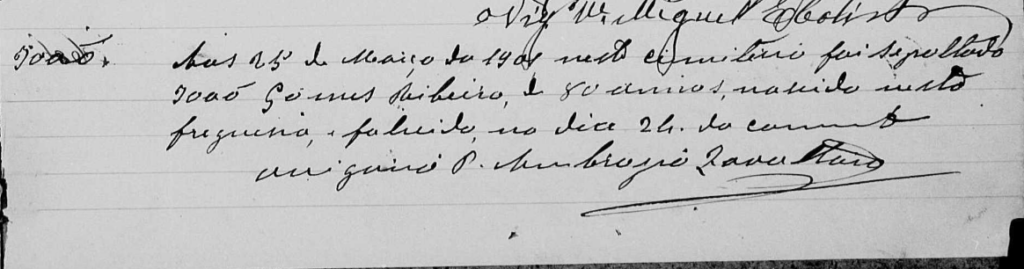 o Vig.º Pe. Miguel
João. Aos 25 de Março de 1901 neste cimiterio foi sepultado
João Gomes Ribeiro, de 80 annos, nascido nesta
freguesia, e falecido, no dia 24. do corrente
O vigario P. Ambrogio